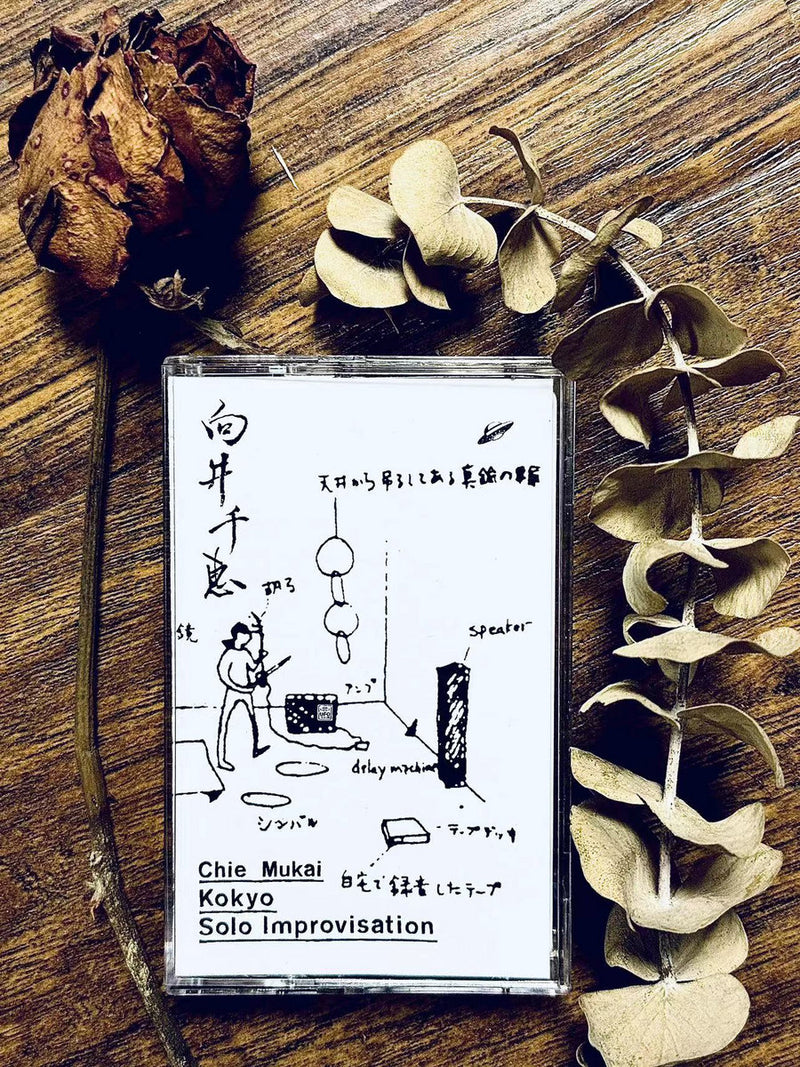 向井千恵
天井から吊るしてある真鍮の輪
胡弓
speaker
鏡
アンプ
delay machine
シンバル
テープデッキ
自宅で録音したテープ
Chie Mukai
Kokyo
Solo Improvisation